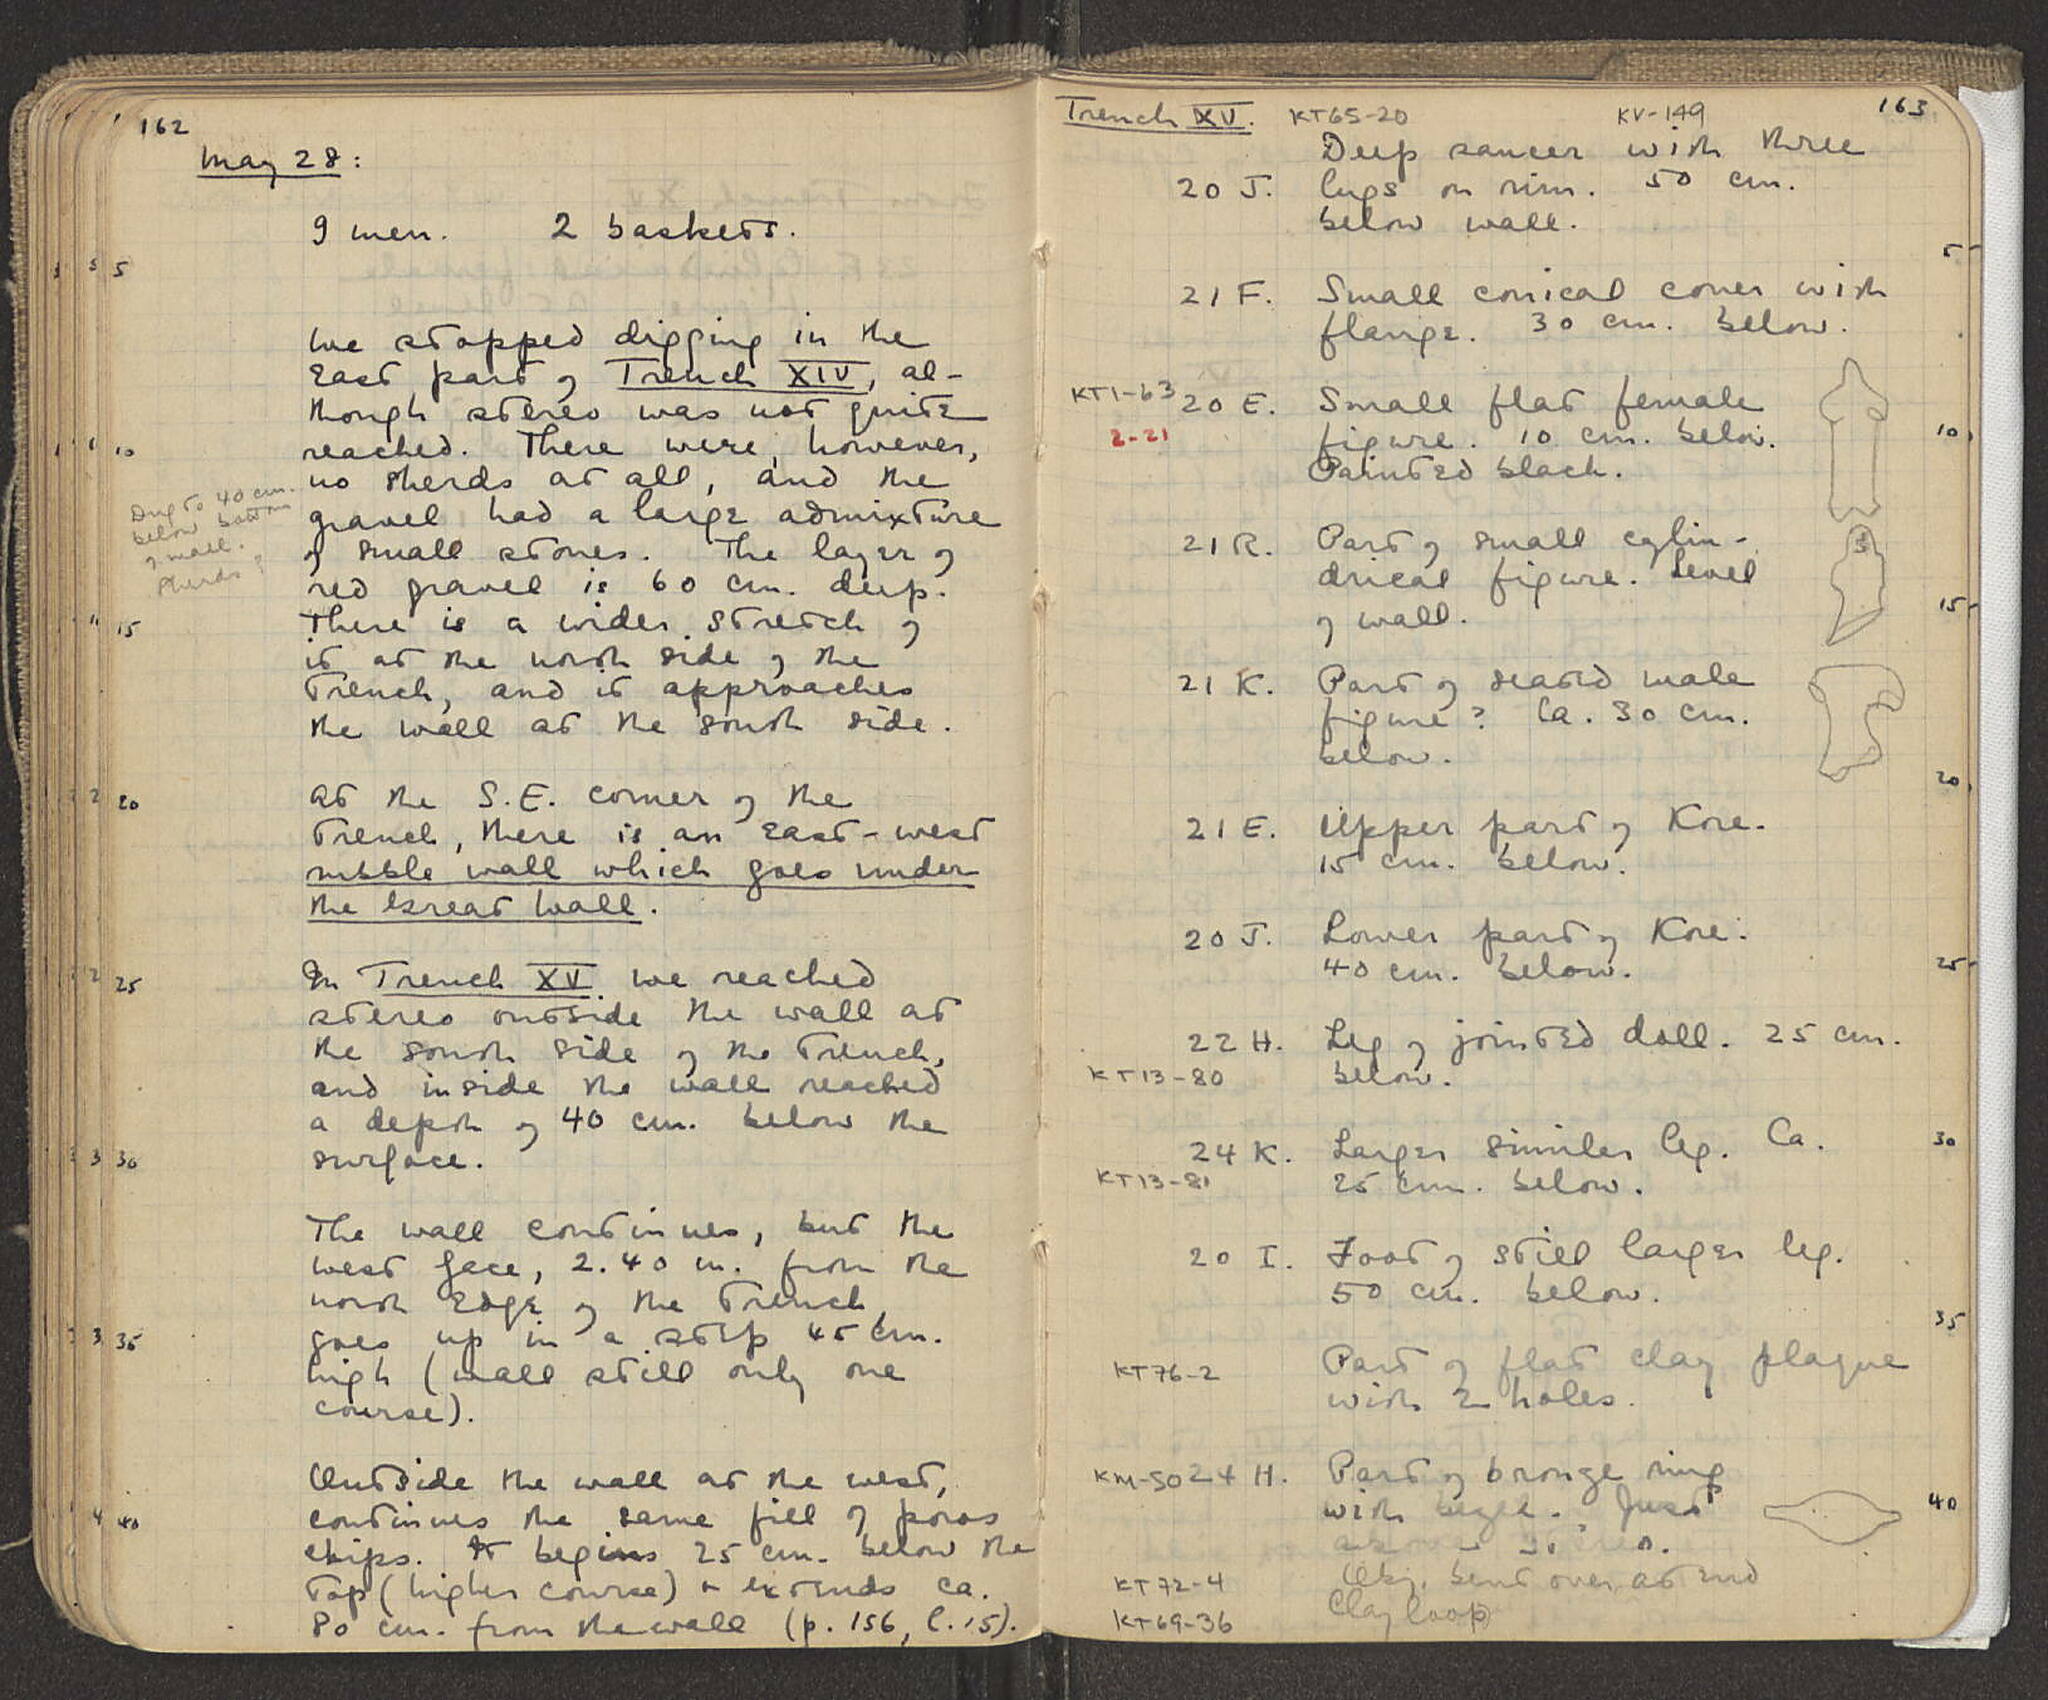 162
May 28:
9 men. 2 baskets.
5
We stopped digging in the
East part of Trench XIV, al-
though stereo was not quite
10 reached. There were, however,
no sherds at all, and the
Dug to 40 cm.
below bottom
of wall.
Sherds?
gravel had a large admixture
of small stones. The layer of
red gravel is 60 cm. deep.
15 There is a wider stretch of
it at the north side of the
trench, and it approaches
the wall at the south side.
20 At the S.E. corner of the
trench, there is an East-west
rubble wall which goes under
the Great Wall.
25 In Trench XV we reached
stereo outside the wall at
the south side of the trench,
and inside the wall reached
a depth of 40 cm. below the
30 surface.
The wall continues, but the
west face, 2.40 m. from the
north edge of the trench,
35 goes up in a step 45 cm.
high (wall still only one
course).
Outside the wall at the west,
40 continues the same fill of poros
chips. It begins 25 cm. below the
top (higher course) & extends ca.
80 cm. from the wall (p. 156, l. 15).
Trench XV. KT65-20 KV-149 163
Deep saucer with three
20 J. lugs on rim. 50 cm.
below wall.
5
21 F. Small conical cover with
flange. 30 cm. below.
KT1-63 20 E. Small flat female
2-21 figure. 10 cm. below. 10
Painted black.
21 R. Part of small cylin-
drical figure. Level
of wall. 15
21 K. Part of seated male
figure? Ca. 30 cm.
below.
20
21 E. Upper part of Kore.
15 cm. below.
20 J. Lower part of Kore.
40 cm. below. 25
22 H. Leg of jointed doll. 25 cm.
KT13-80 below.
24 K. Larger similar leg. Ca. 30
KT13-81 25 cm. below.
20 I. Foot of still larger leg.
50 cm. below.
35
KT76-2 Part of flat clay plaque
with 2 holes.
KM-50 24 H. Part of bronze ring
with bezel. Just 40
above stereo.
KT72-4 Obj. bent over at end
KT69-36 Clay loop